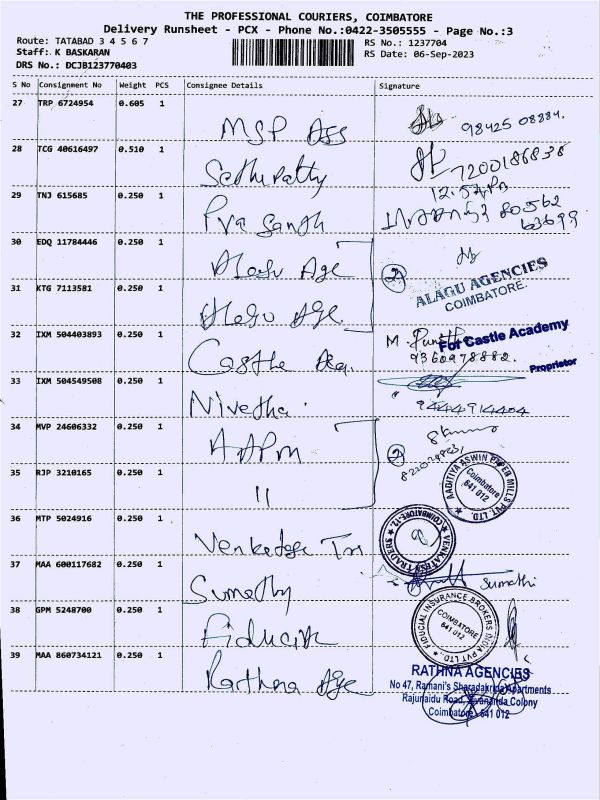 THE PROFESSIONAL COURIERS, COIMBATORE
Delivery Runsheet - PCX - Phone No.:0422-3505555 - Page No.:3
Route: TATABAD 3 4 5 6 7
RS No.: 1237704
Staff: K BASKARAN
RS Date: 06-Sep-2023
DRS No.: DCJB123770403
S No Consignment No Weight PCS Consignee Details Signature
27 TRP 6724954 0.605 1
MSP Ass 98425 08884.
28 TCG 40616497 0.510 1
Sethupathy 7200186838
29 TNJ 615685 0.250 1
Prasanth 80562
63699
30 EDQ 11784446 0.250 1
Alagu Age 2
ALAGU AGENCIES
COIMBATORE.
31 KTG 7113581 0.250 1
Alagu Age
32 IXM 504403893 0.250 1
Castle Aca. M.
For Castle Academy
9360978880.
Proprietor
33 IXM 504549508 0.250 1
Nivetha 9444914404
34 MVP 24606332 0.250 1
AAPM 2
35 RJP 3210165 0.250 1
11
AADITIYA ASWIN PAPER MILLS PVT. LTD.
Coimbatore
641 012
36 MTP 5024916 0.250 1
Venkatesa Tra
VENKATESH TRADERS COIMBATORE-12.
37 MAA 600117682 0.250 1
Sumathy Sumathi
38 GPM 5248700 0.250 1
Fiducia
FIDUCIAL INSURANCE BROKERS INDIA PVT LTD.
COIMBATORE
641 012
39 MAA 860734121 0.250 1
Rathna Age
RATHNA AGENCIES
No 47, Ramani's Sharadakrida Apartments
Rajunaidu Road, Sivananda Colony
Coimbatore - 641 012